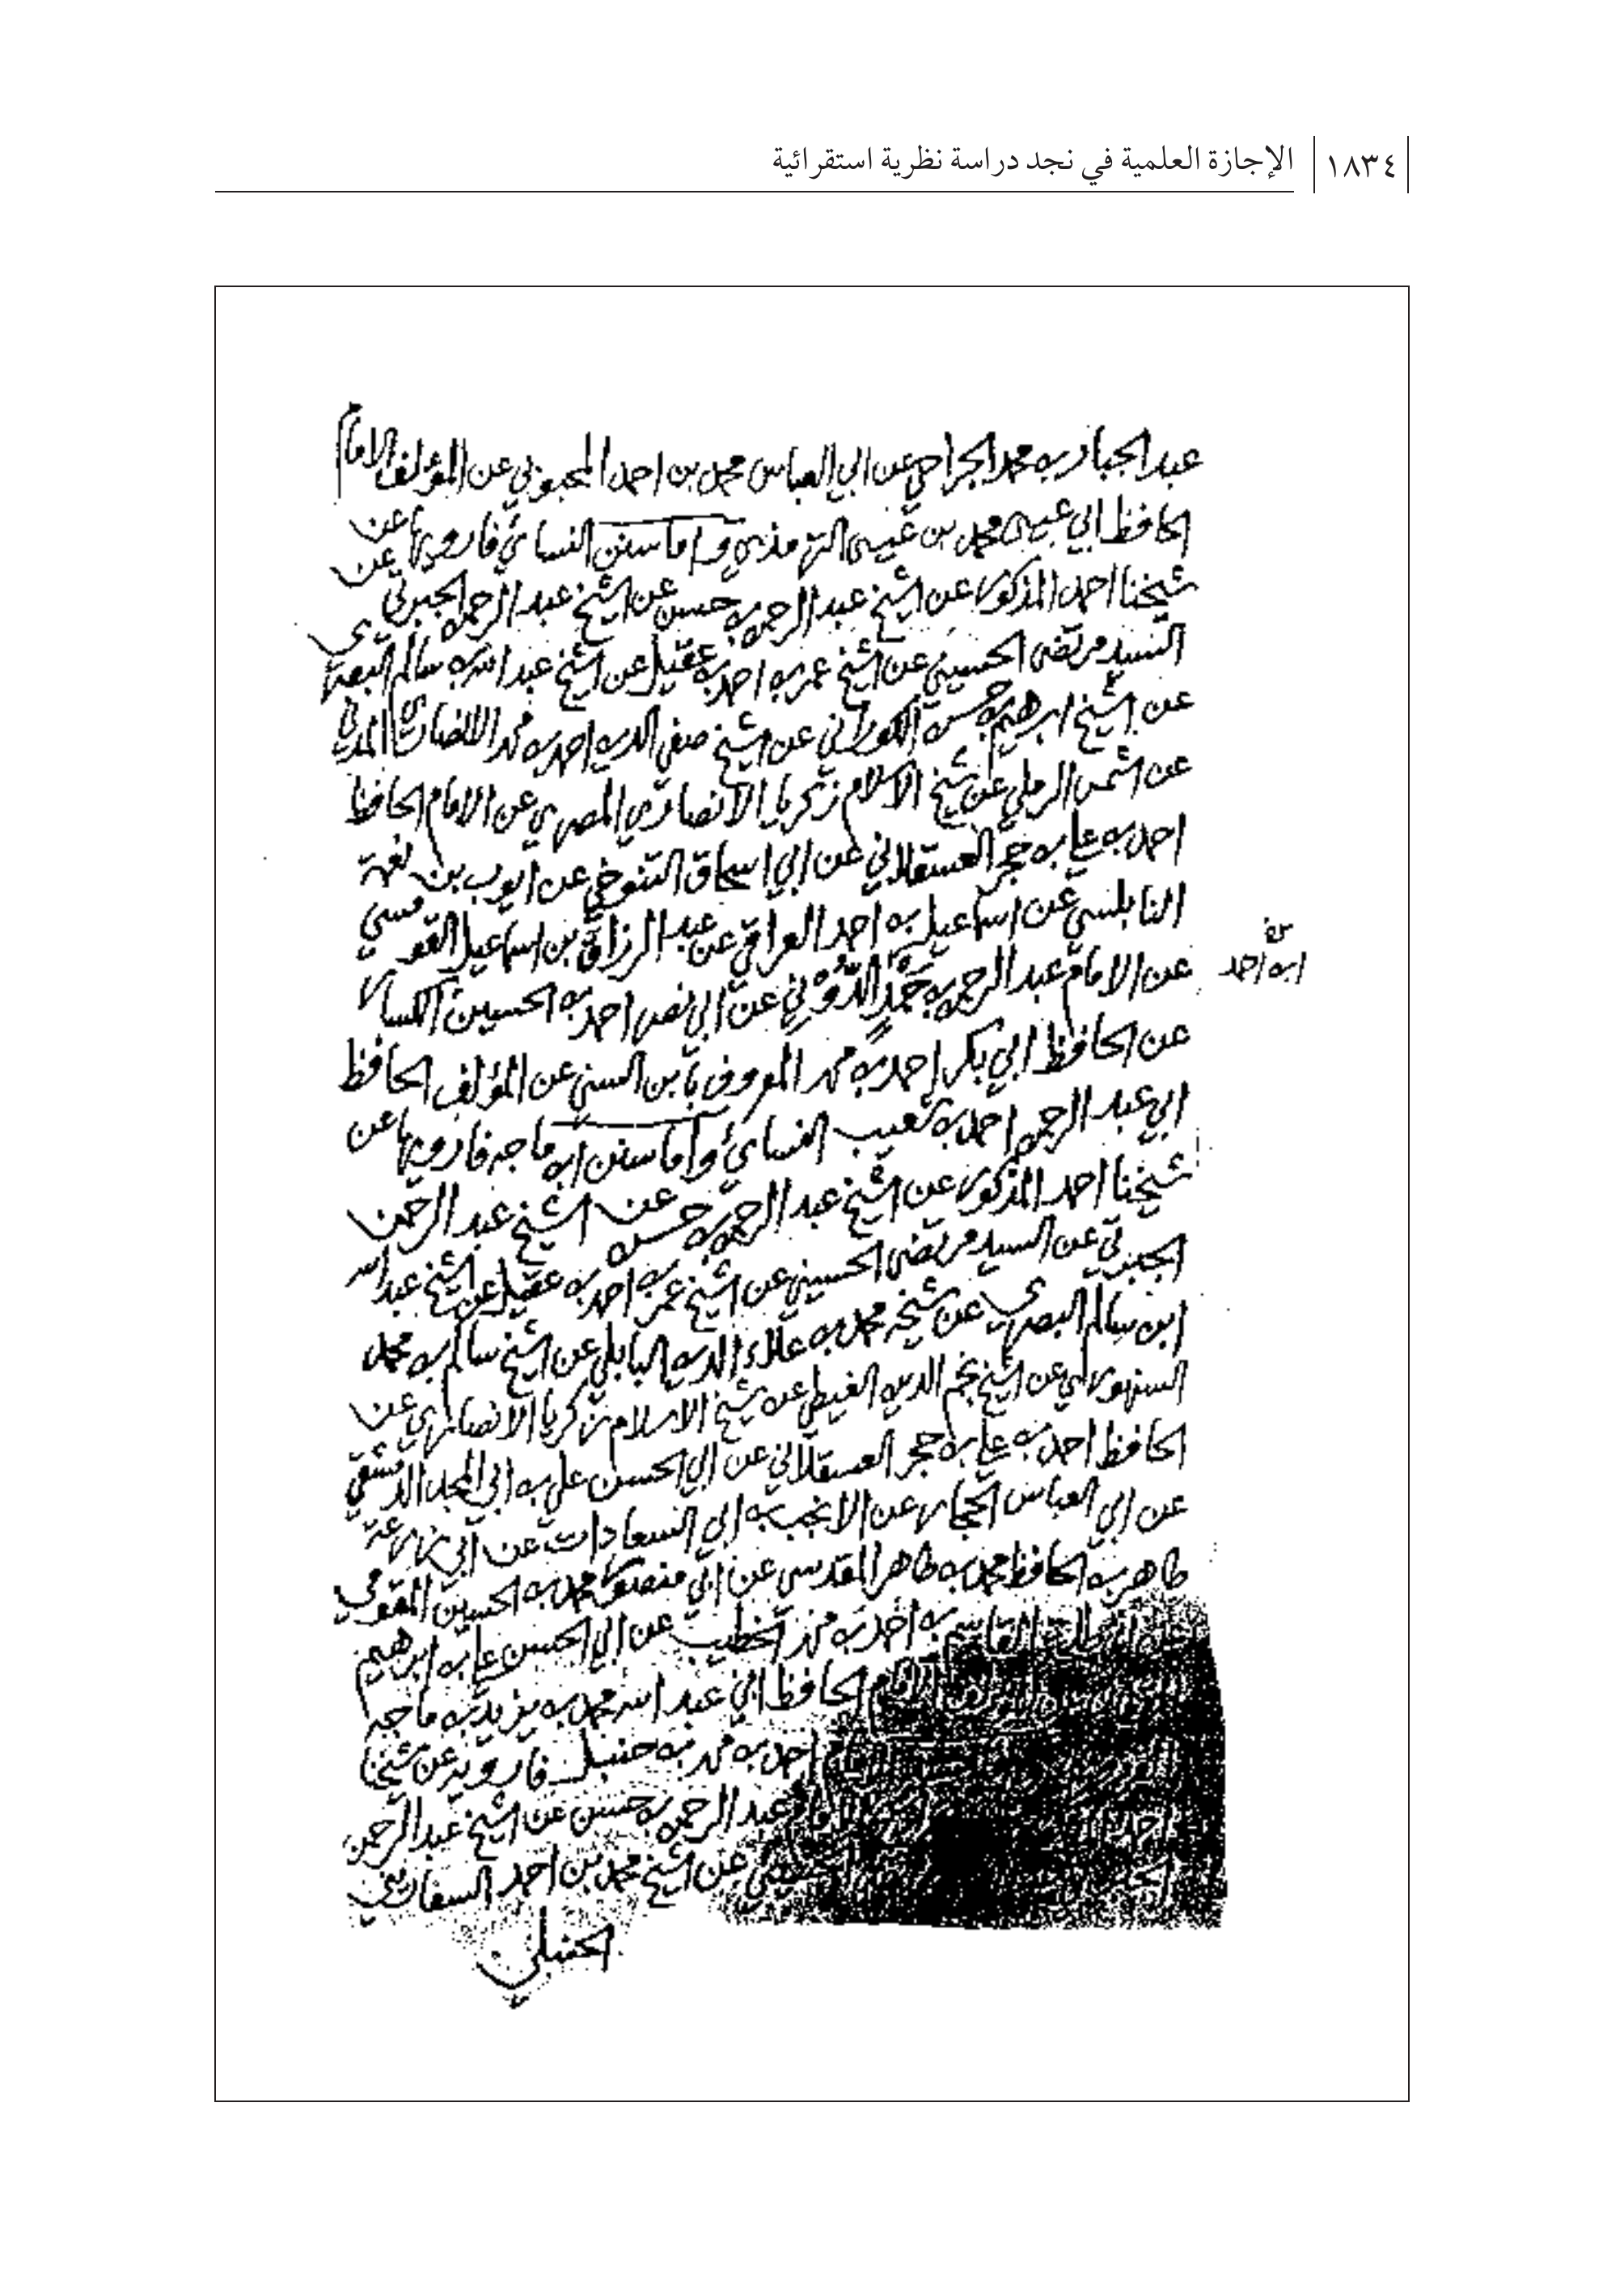 ١٨٣٤ الإجازة العلمية في نجد دراسة نظرية استقرائية
عبد الجبار بن محمد الجراحي عن ابي العباس محمد بن احمد المحبوبي عن المؤلف الامام
الحافظ ابي عيسى محمد بن عيسى الترمذي واما سنن النسائي فارويها عن
شيخنا احمد المذكور عن الشيخ عبد الرحمن بن حسن عن الشيخ عبد الرحمن الجبرتي عن
السيد مرتضى الحسيني عن الشيخ عمر بن احمد بن عقيل عن الشيخ عبد الله بن سالم البصري
عن الشيخ ابراهيم بن حسن الكوراني عن الشيخ صفي الدين احمد بن محمد الانصاري المدني
عن الشمس الرملي عن شيخ الاسلام زكريا الانصاري المصري عن الامام الحافظ
احمد بن علي بن حجر العسقلاني عن ابي اسحاق التنوخي عن ايوب بن نعمة
النابلسي عن اسماعيل بن احمد العراقي عن عبد الرزاق بن اسماعيل القومسي
عن الامام عبد الرحمن بن حَمْدٍ الدُّوْنِي عن ابي نصر احمد بن الحسين الكسار
ابن احمد
عن الحافظ ابي بكر احمد بن محمد المعروف بابن السني عن المؤلف الحافظ
ابي عبد الرحمن احمد بن شعيب النسائي واما سنن ابن ماجه فارويها عن
شيخنا احمد المذكور عن الشيخ عبد الرحمن بن حسن عن الشيخ عبد الرحمن
الجبرتي عن السيد مرتضى الحسيني عن الشيخ عمر بن احمد بن عقيل عن الشيخ عبد الله
ابن سالم البصري عن شيخه محمد بن علاء الدين البابلي عن الشيخ سالم بن محمد
السنهوري عن الشيخ نجم الدين الغيطي عن شيخ الاسلام زكريا الانصاري عن
الحافظ احمد بن علي بن حجر العسقلاني عن ابي الحسن علي بن ابي المجد الدمشقي
عن ابي العباس الحجار عن الانجب بن ابي السعادات عن ابي زرعة
طاهر بن الحافظ محمد بن طاهر المقدسي عن ابي منصور محمد بن الحسين المقومي
عن ابي طلحة القاسم بن احمد بن محمد الخطيب عن ابي الحسن علي بن ابراهيم
الامام الحافظ ابي عبد الله محمد بن يزيد بن ماجه
احمد بن محمد بن حنبل فارويه عن شيخنا
عبد الرحمن بن حسن عن الشيخ عبد الرحمن
عن الشيخ محمد بن احمد السفاريني
الحنبلي